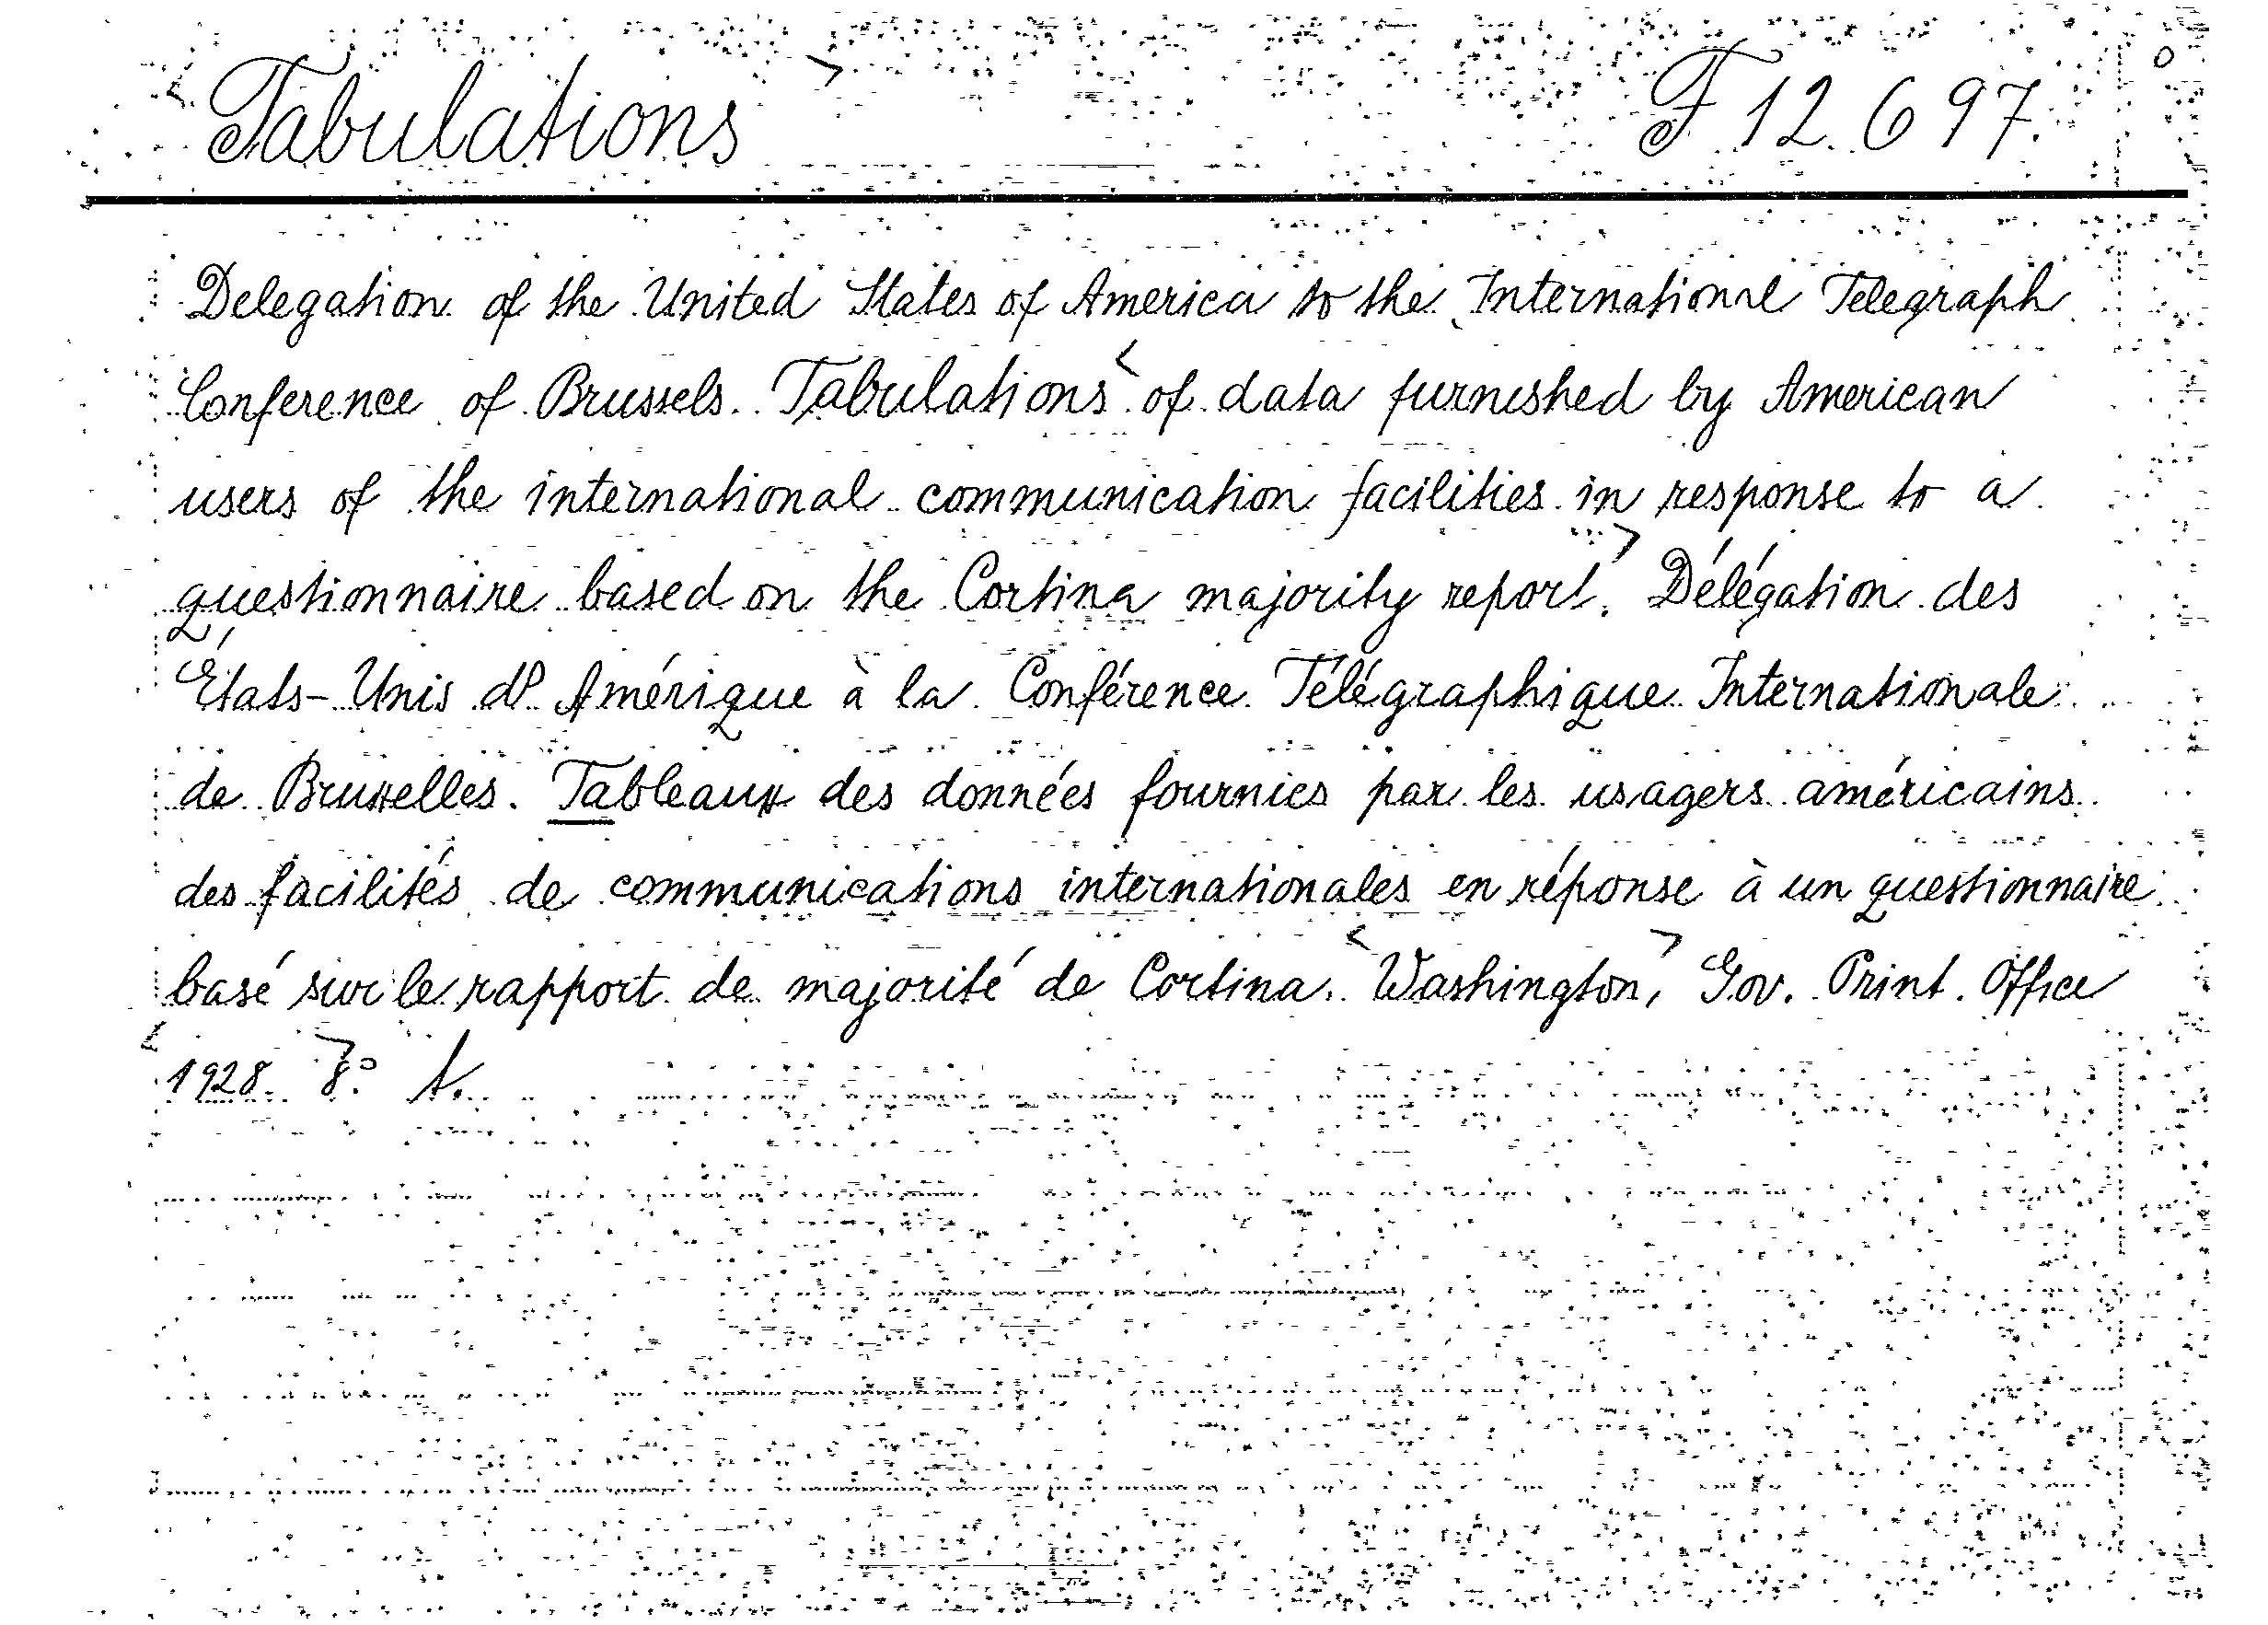 Tabulations F 12.697.
Delegation of the United States of America to the International Telegraph
Conference of Brussels. Tabulations of data furnished by American
users of the international communication facilities in response to a
questionnaire based on the Cortina majority report. Délégation des
États-Unis d'Amérique à la Conférence Télégraphique Internationale
de Bruxelles. Tableaux des données fournies par les usagers américains
des facilités de communications internationales en réponse à un questionnaire
basé sur le rapport de majorité de Cortina. Washington, Gov. Print. Office
1928. 8° t.